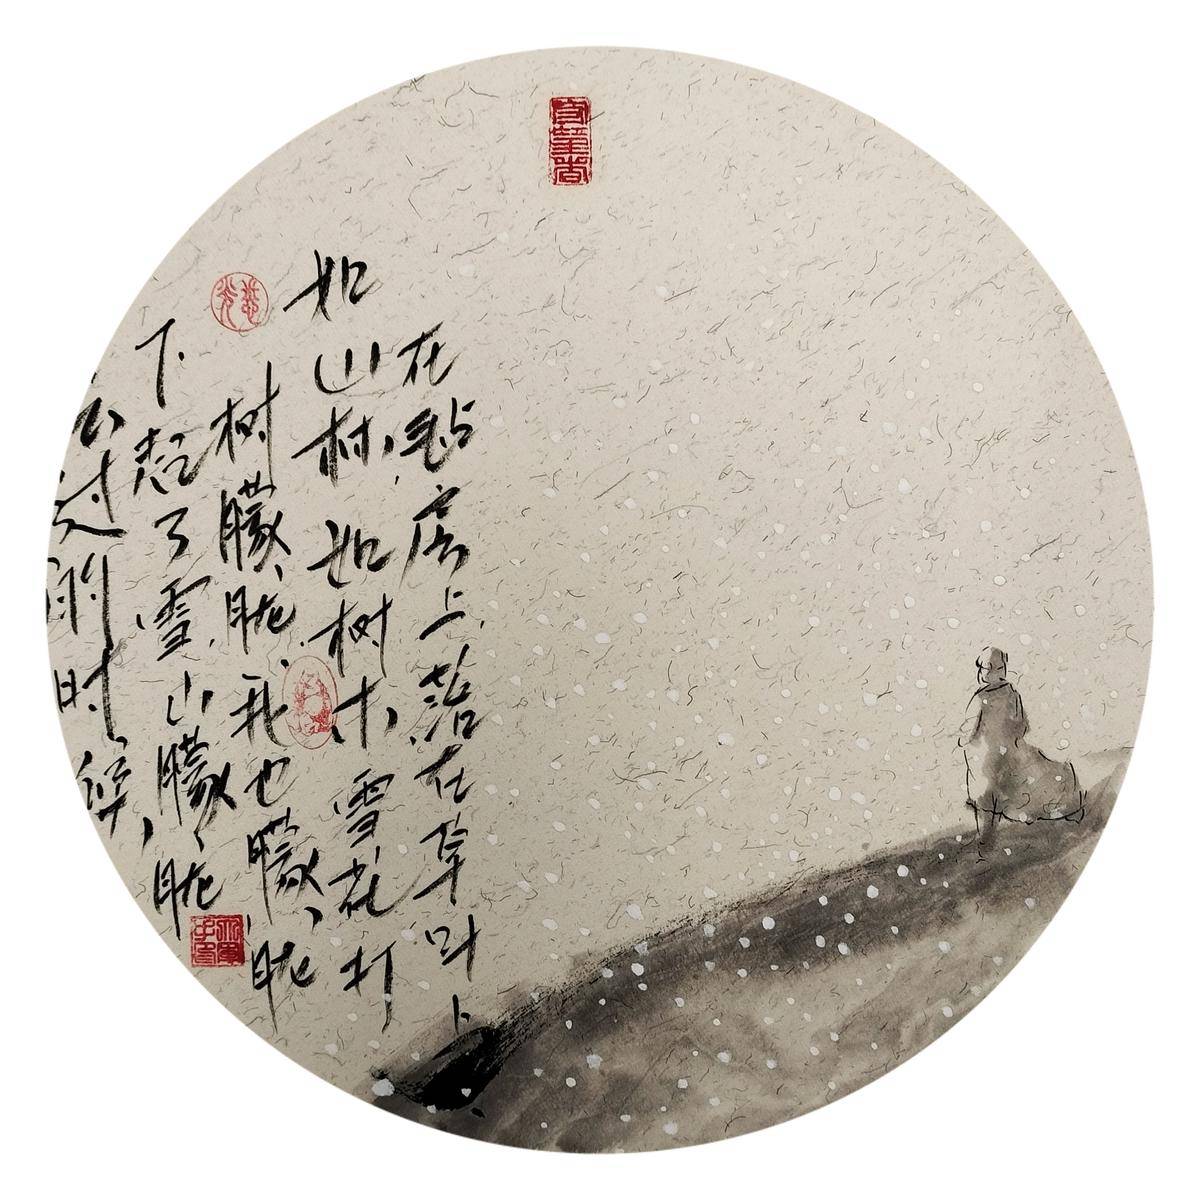 过的时候，
下起了雪山朦胧
树朦胧我也朦胧
如山村，如树木，雪花打
在毡房上落在草叶上